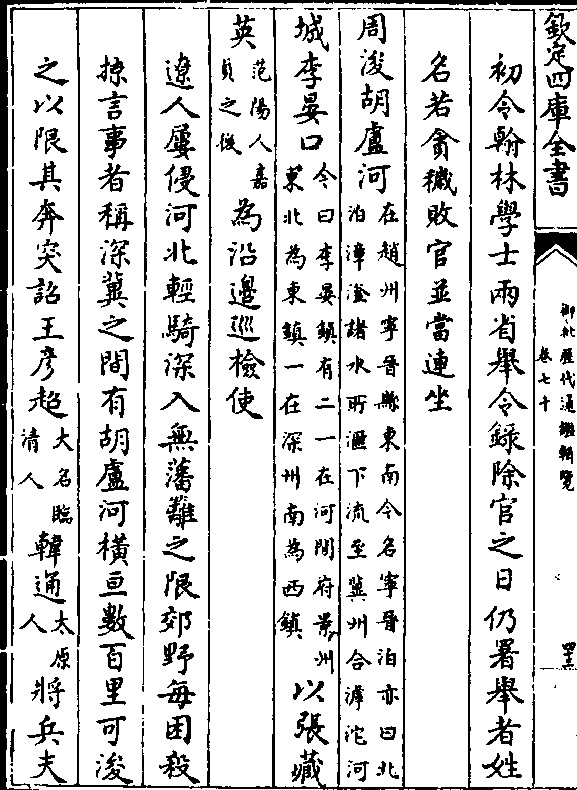 欽定四庫全書
御批歷代通鑑輯覽
卷七十
初令翰林學士兩省舉令錄除官之日仍署舉者姓
名若貪穢敗官並當連坐
周浚胡盧河在趙州寧晉縣東南今名寧晉泊亦曰北泊漳滏諸水所滙下流至冀州合滹沱河
城李晏口今曰李晏鎮有二一在河間府景州東北為東鎮一在深州南為西鎮以張藏
英范陽人嘉貞之後為沿邊巡檢使
遼人屢侵河北輕騎深入無藩籬之限郊野每困殺
掠言事者稱深冀之間有胡盧河橫亘數百里可浚
之以限其奔突詔王彦超大名臨清人韓通太原人將兵夫